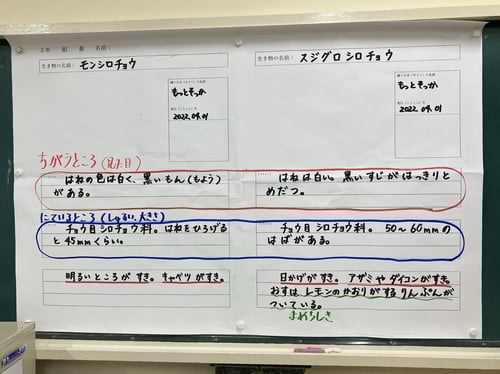 ３年　組　番　名前：
生き物の名前：モンシロチョウ
もっとそっか
2022.04.01
生き物の名前：スジグロシロチョウ
もっとそっか
2022.04.01
ちがうところ（見た目）
はねの色は白く、黒いもん（もよう）
がある。
はねは白い。黒いすじがはっきりと
めだつ。
にているところ（しゅるい、大きさ）
チョウ目シロチョウ科。はねをひろげる
と45mmくらい。
チョウ目シロチョウ科。50～60mmの
はばがある。
明るいところがすき。キャベツがすき。
日かげがすき。アザミやダイコンがすき。
おすはレモンのかおりがするりんぷんが
ついている。